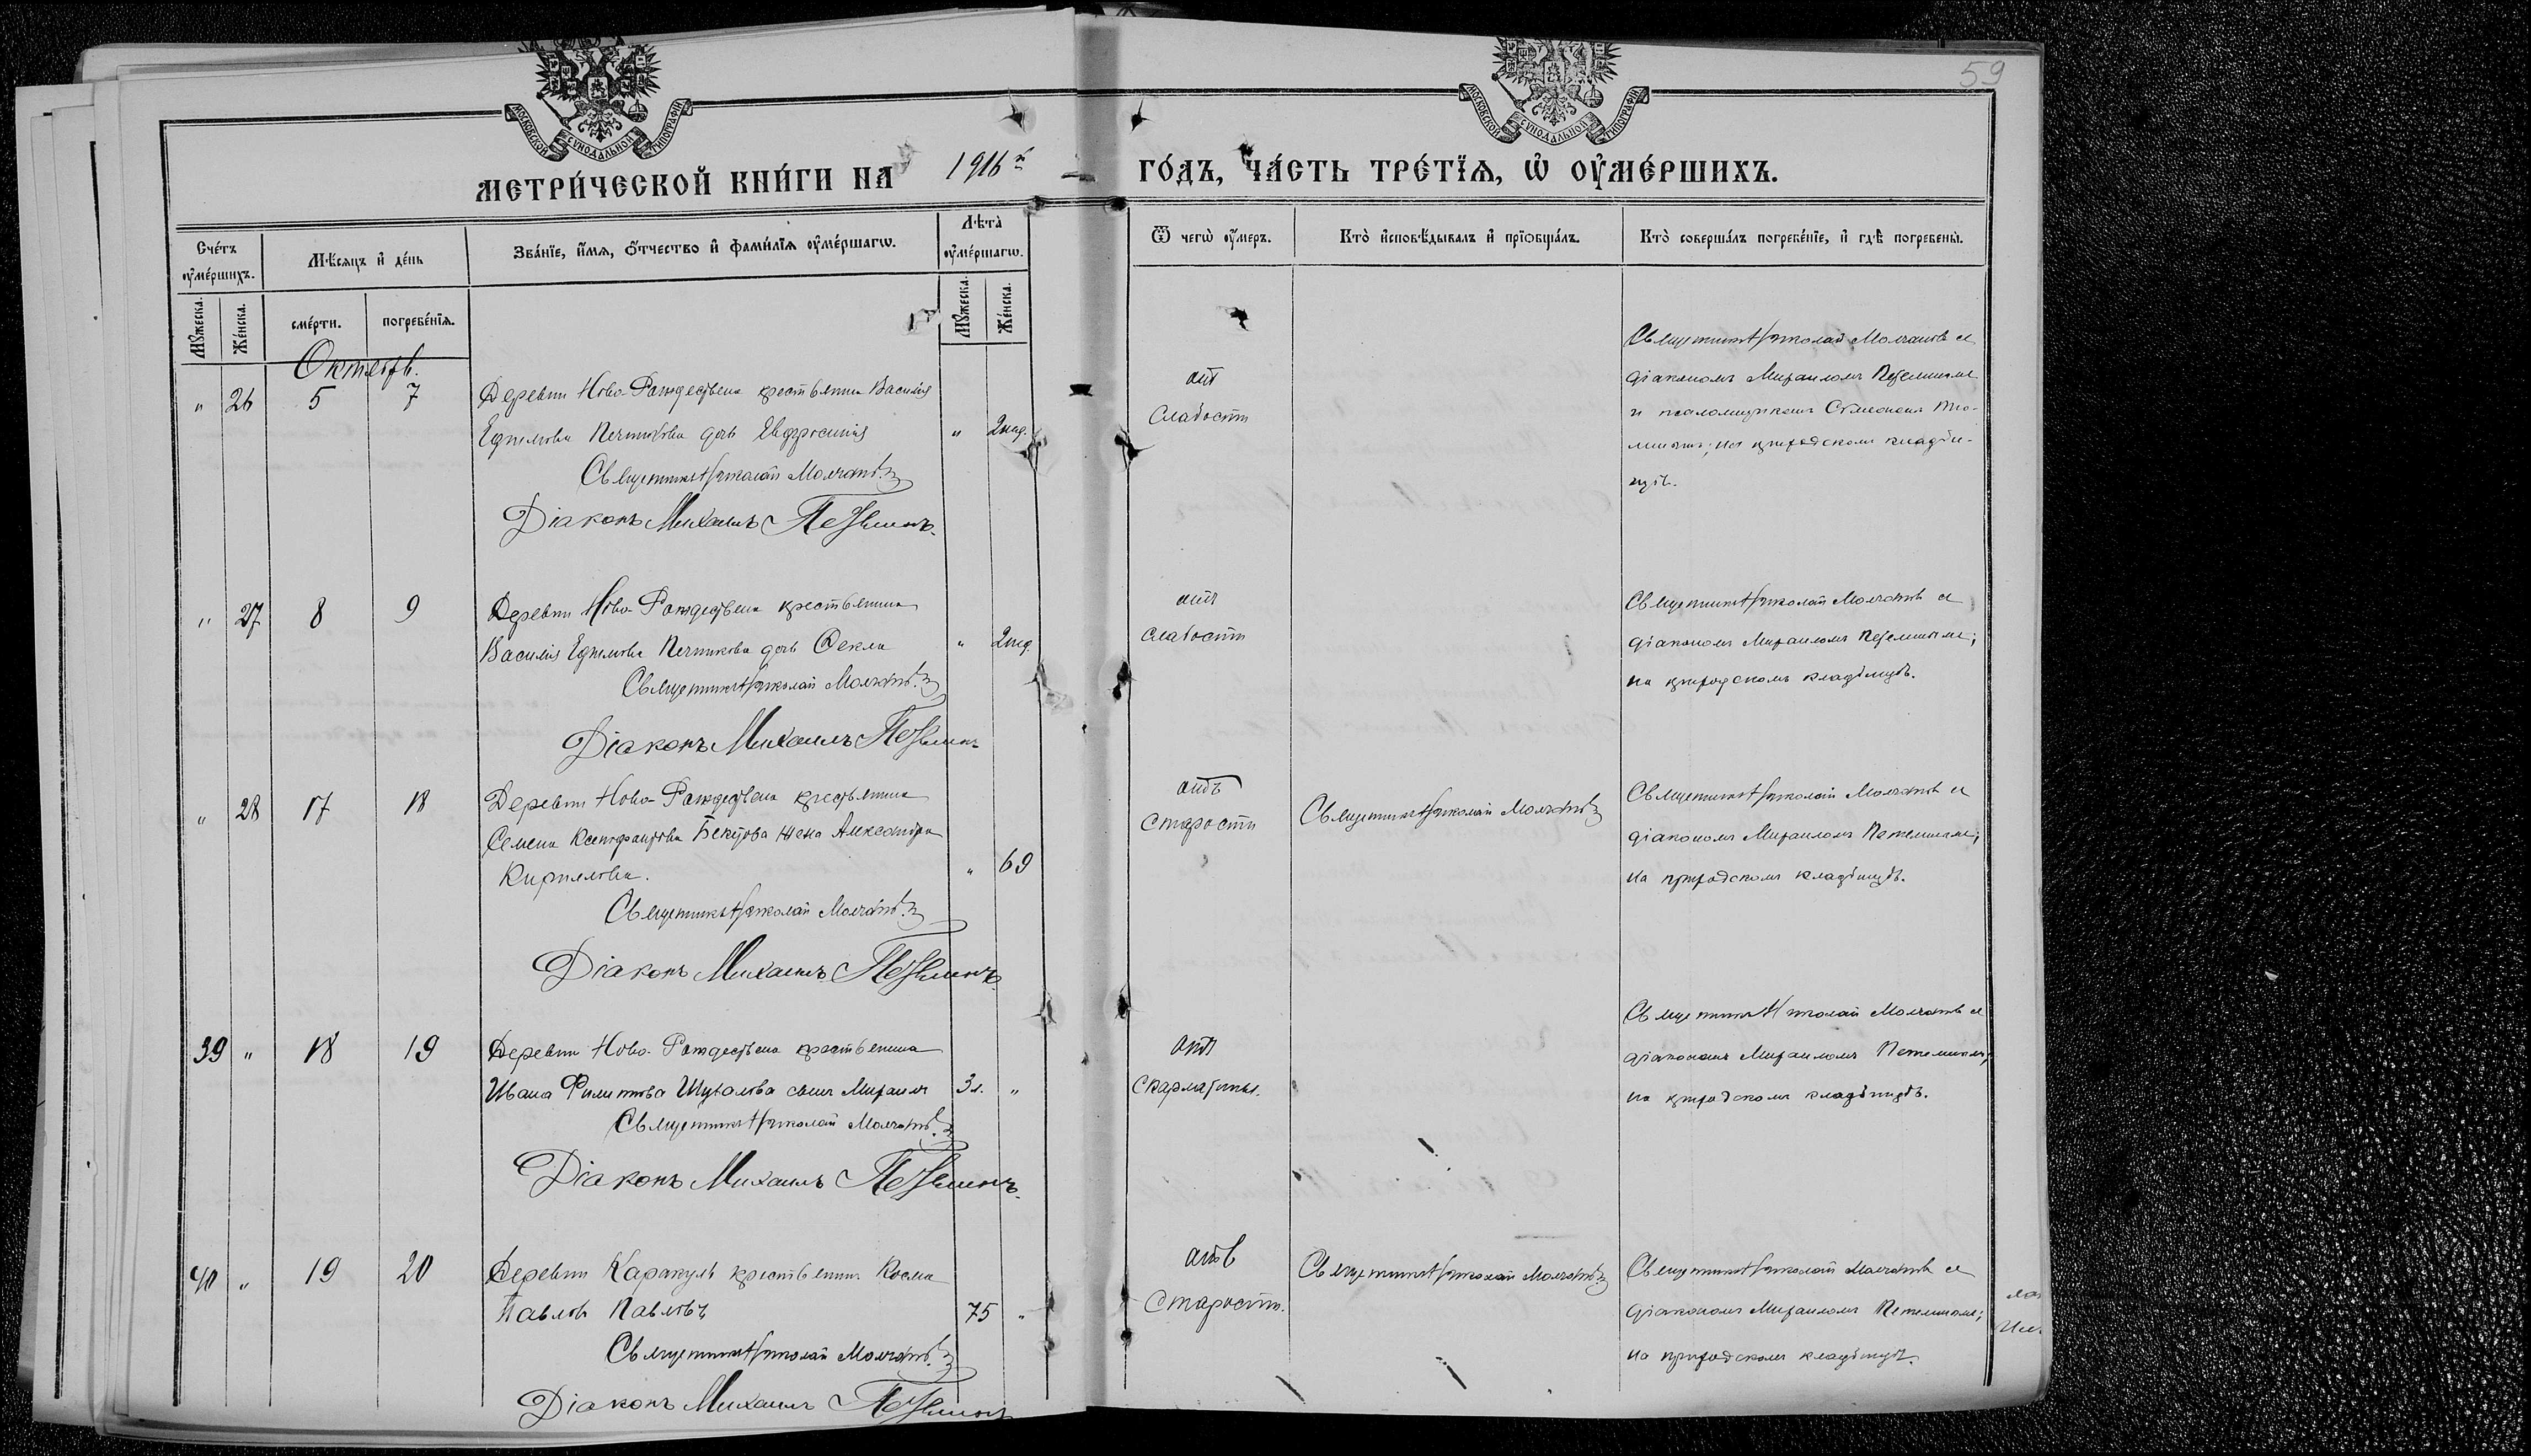 59
МОСКОВСКОЙ СѴНОДАЛЬНОЙ ТИПОГРАФІИ
МОСКОВСКОЙ СѴНОДАЛЬНОЙ ТИПОГРАФІИ
МЕТРИ́ЧЕСКОЙ КНИ́ГИ НА 1916й ГО́ДЪ, ЧА́СТЬ ТРЕ́ТЇѦ, Ѡ҆ ОУ҆МЕ́РШИХЪ.
Сче́тъ оу҆ме́ршихъ.
Мꙋ́жеска.
Же́нска.
Мѣ́сяцъ и҆ де́нь
сме́рти.
погребе́нїѧ.
Зва́нїе, и҆́мѧ, ѻ҆́тчество и҆ фами́лїѧ оу҆ме́ршагѡ.
Лѣ́та оу҆ме́ршагѡ.
Мꙋ́жеска.
Же́нска.
Ѿ чегѡ̀ оу҆́меръ.
Кто̀ и҆сповѣ́дывалъ и҆ прїѡбща́лъ.
Кто̀ соверша́лъ погребе́нїе, и҆ гдѣ̀ погребены̀.
Октябрь.
" 26 5 7
Деревни Ново-Рождествена крестьянина Василія
Ефимова Печникова дочь Евфросинія " 2 нед.
Священникъ Николай Молчановъ
Діаконъ Михаилъ Петелинъ.
отъ
слабости
Священникъ Николай Молчановъ съ
діакономъ Михаиломъ Петелинымъ
и псаломщикомъ
на приходскомъ кладби-
щѣ.
" 27 8 9
Деревни Ново-Рождествена крестьянина
Василія Ефимова Печникова дочь Фекла " 2 нед.
Священникъ Николай Молчановъ
Діаконъ Михаилъ Петелинъ
отъ
слабости
Священникъ Николай Молчановъ съ
діакономъ Михаиломъ Петелинымъ;
на приходскомъ кладбищѣ.
" 28 17 18
Деревни Ново-Рождествена крестьянина
Семена Ксенофонтова жена Александра
Кирилова. " 69
Священникъ Николай Молчановъ
Діаконъ Михаилъ Петелинъ.
отъ
старости
Священникъ Николай Молчановъ
Священникъ Николай Молчановъ съ
діакономъ Михаиломъ Петелинымъ;
на приходскомъ кладбищѣ.
39 " 18 19
Деревни Ново-Рождествена крестьянина
Ивана Филиппова Шувалова сынъ Михаилъ 3 л. "
Священникъ Николай Молчановъ
Діаконъ Михаилъ Петелинъ.
отъ
скарлатины.
Священникъ Николай Молчановъ съ
діакономъ Михаиломъ Петелинымъ;
на приходскомъ кладбищѣ.
40 " 19 20
Деревни Каракуль крестьянинъ Косма
Павловъ Павловъ 75 "
Священникъ Николай Молчановъ
Діаконъ Михаилъ Петелинъ
отъ
старости.
Священникъ Николай Молчановъ
Священникъ Николай Молчановъ съ
діакономъ Михаиломъ Петелинымъ;
на приходскомъ кладбищѣ.